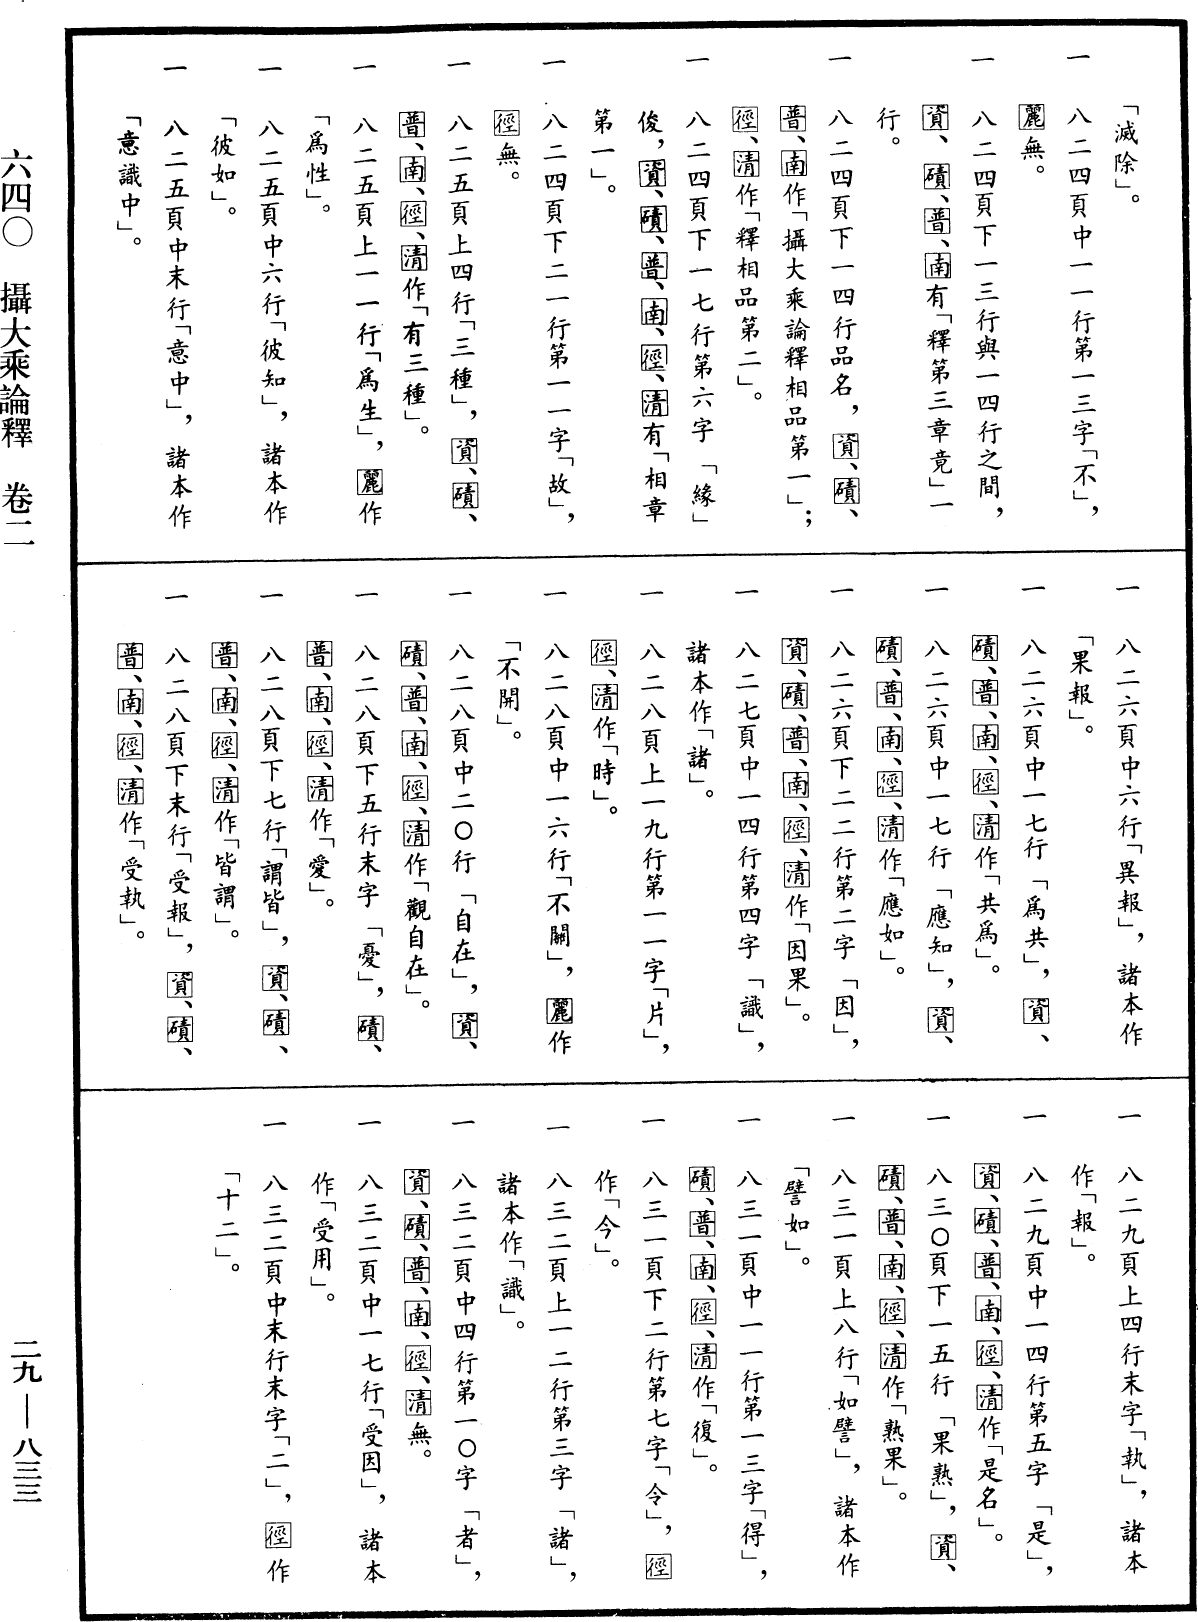 「滅除」。
一　八二四頁中一一行第一三字「不」，
麗無。
一　八二四頁下一三行與一四行之間，
資、磧、普、南有「釋第三章竟」一
行。
一　八二四頁下一四行品名，資、磧、
普、南作「攝大乘論釋相品第一」；
徑、清作「釋相品第二」。
一　八二四頁下一七行第六字「緣」
後，資、磧、普、南、徑、清有「相章
第一」。
一　八二四頁下二一行第一一字「故」，
徑無。
一　八二五頁上四行「三種」，資、磧、
普、南、徑、清作「有三種」。
一　八二五頁上一一行「爲生」，麗作
「爲性」。
一　八二五頁中六行「彼知」，諸本作
「彼如」。
一　八二五頁中末行「意中」，諸本作
「意識中」。
一　八二六頁中六行「異報」，諸本作
「果報」。
一　八二六頁中一七行「爲共」，資、
磧、普、南、徑、清作「共爲」。
一　八二六頁中一七行「應知」，資、
磧、普、南、徑、清作「應如」。
一　八二六頁下二二行第二字「因」，
資、磧、普、南、徑、清作「因果」。
一　八二七頁中一四行第四字「識」，
諸本作「諸」。
一　八二八頁上一九行第一一字「片」，
徑、清作「時」。
一　八二八頁中一六行「不關」，麗作
「不開」。
一　八二八頁中二〇行「自在」，資、
磧、普、南、徑、清作「觀自在」。
一　八二八頁下五行末字「憂」，磧、
普、南、徑、清作「愛」。
一　八二八頁下七行「謂皆」，資、磧、
普、南、徑、清作「皆謂」。
一　八二八頁下末行「受報」，資、磧、
普、南、徑、清作「受執」。
一　八二九頁上四行末字「執」，諸本
作「報」。
一　八二九頁中一四行第五字「是」，
資、磧、普、南、徑、清作「是名」。
一　八三〇頁下一五行「果熟」，資、
磧、普、南、徑、清作「熟果」。
一　八三一頁上八行「如譬」，諸本作
「譬如」。
一　八三一頁中一一行第一三字「得」，
磧、普、南、徑、清作「復」。
一　八三一頁下二行第七字「令」，徑
作「今」。
一　八三二頁上一二行第三字「諸」，
諸本作「識」。
一　八三二頁中四行第一〇字「者」，
資、磧、普、南、徑、清無。
一　八三二頁中一七行「受因」，諸本
作「受用」。
一　八三二頁中末行末字「二」，徑作
「十二」。
六四〇　攝大乘論釋　卷二
二九—八三三